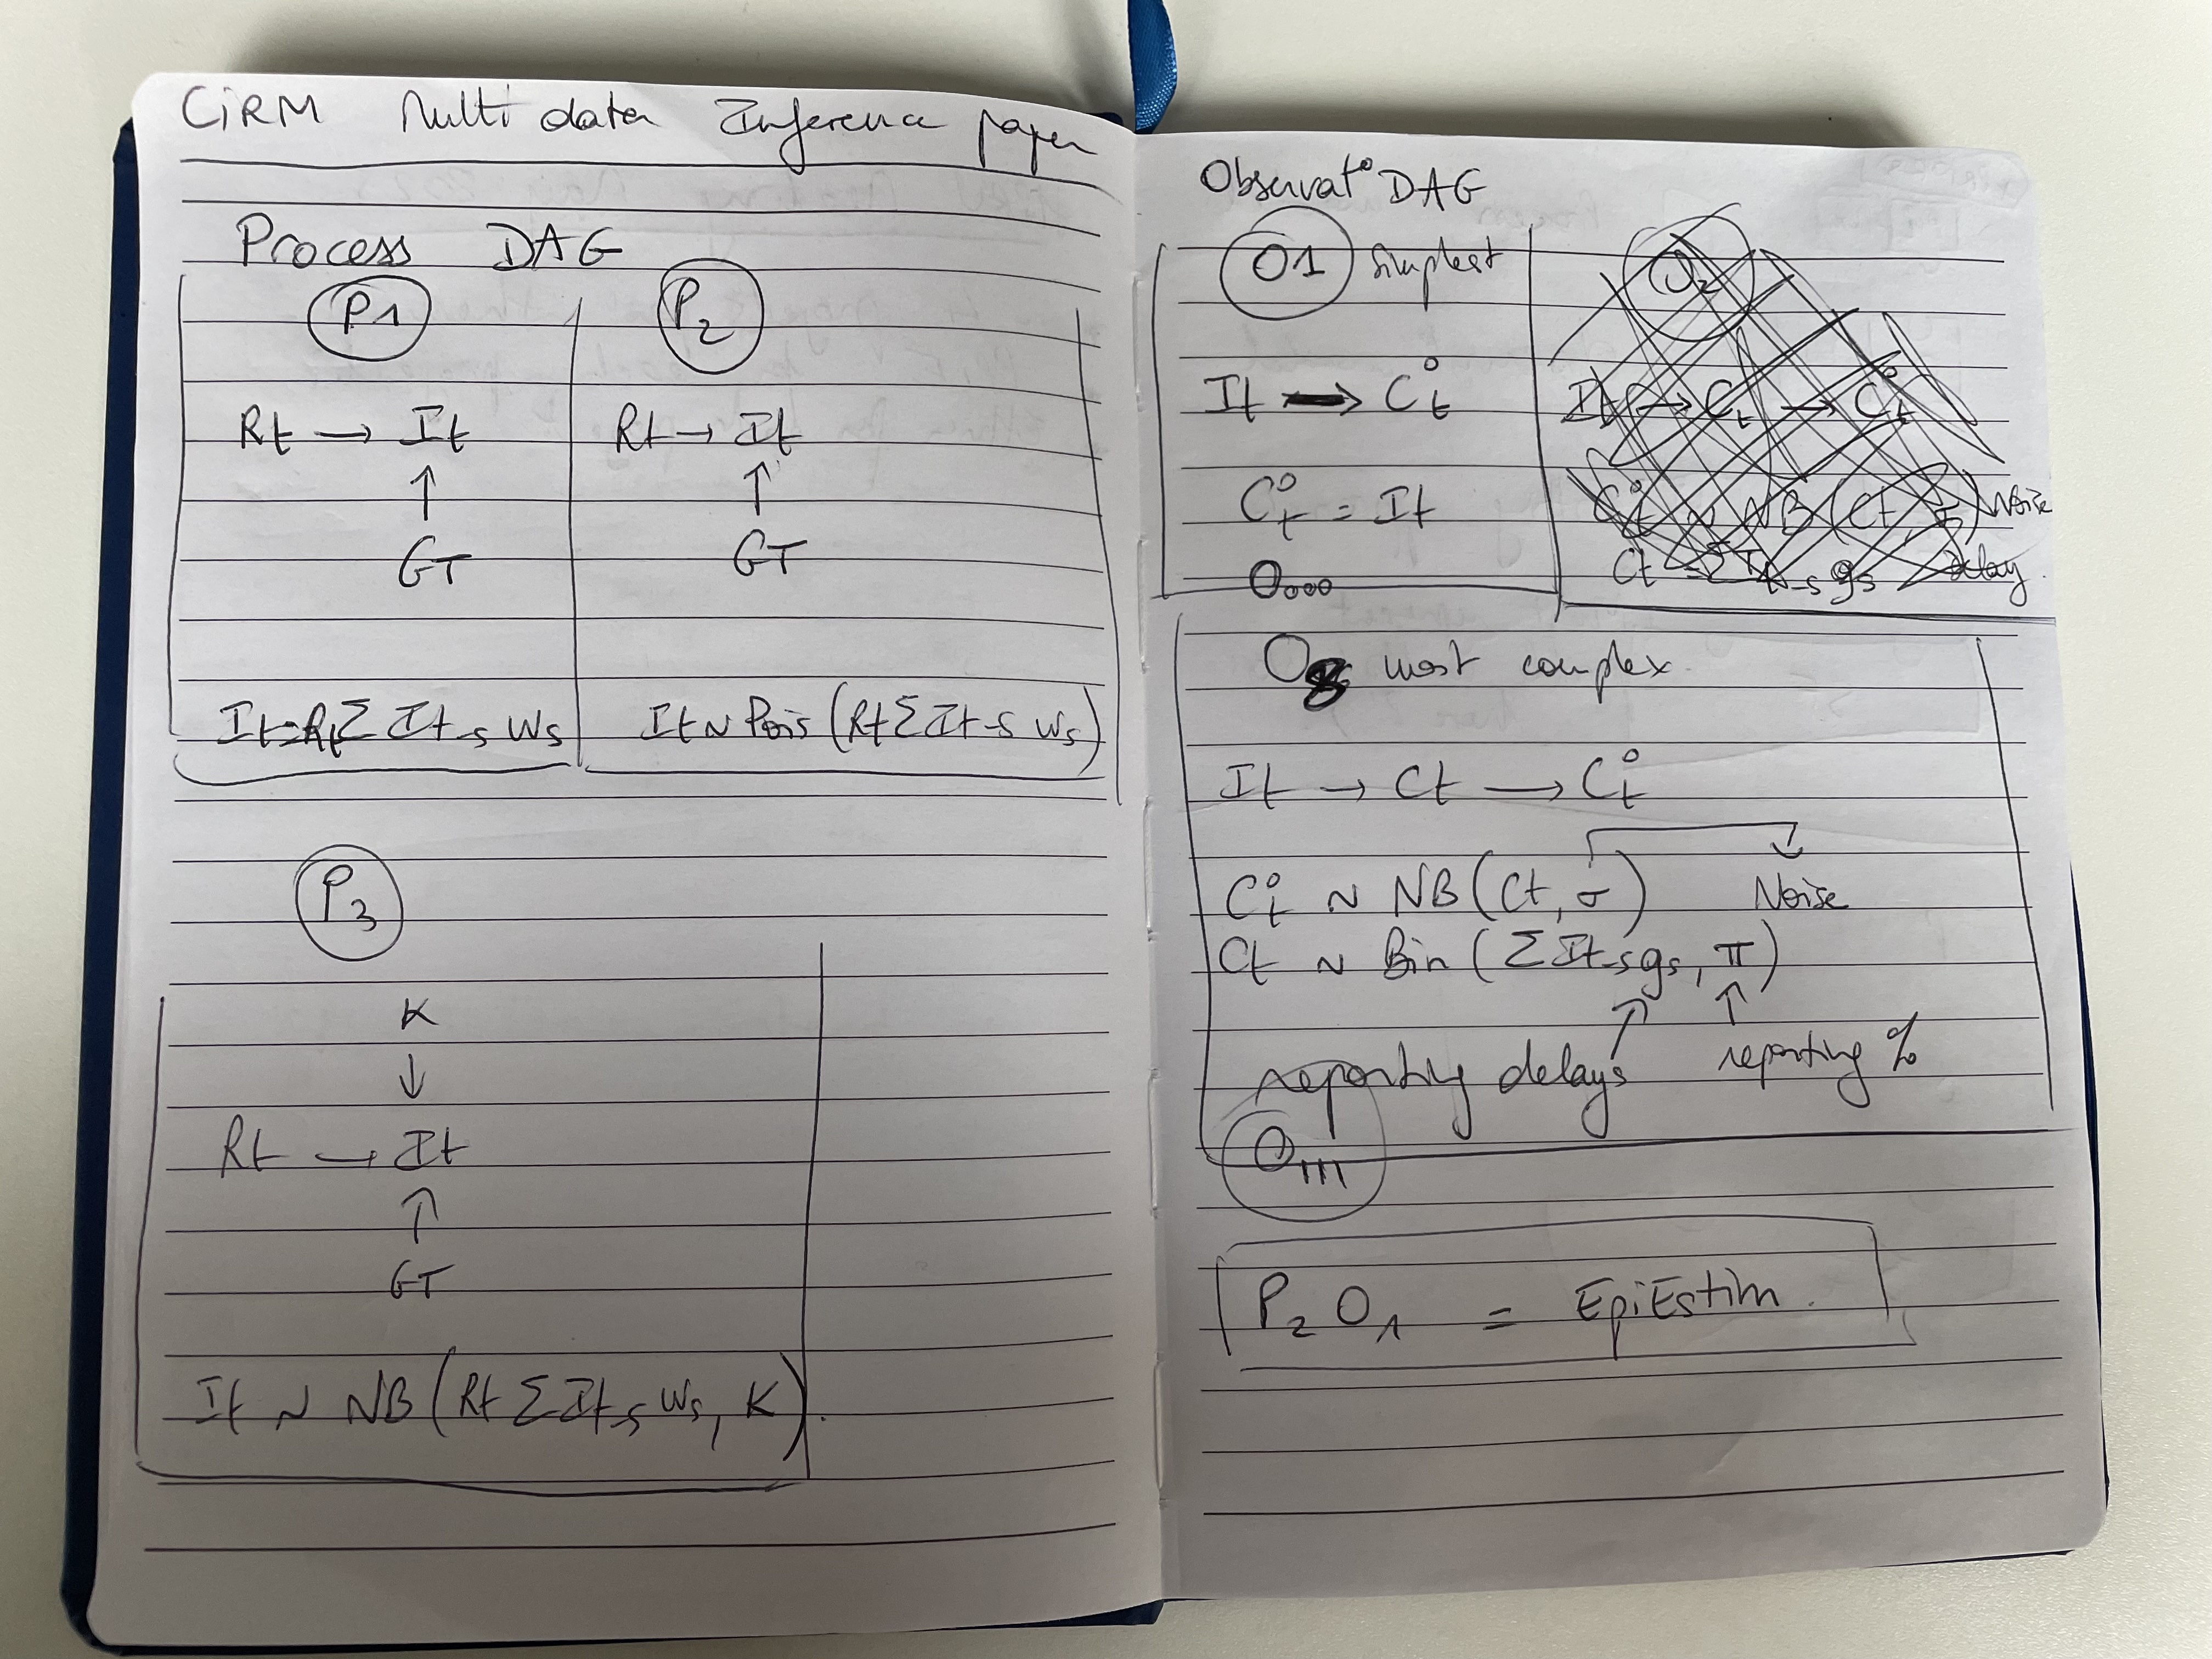 CiRM Multi data Inference paper
Process DAG
P1
Rt → It
↑
GT
It = Rt Σ It-s Ws
P2
Rt → It
↑
GT
It ~ Pois (Rt Σ It-s Ws)
P3
K
↓
Rt → It
↑
GT
It ~ NB (Rt Σ It-s Ws, K).
Observat° DAG
O1 simplest
It → C°t
C°t = It
O000
O2
It → Ct → C°t
C°t ~ NB (Ct, ) Noise
Ct = Σ It-s gs delay.
O8 most complex.
It → Ct → C°t
C°t ~ NB (Ct, σ) Noise
Ct ~ Bin (Σ It-s gs, π)
reporting delays reporting %
O111
P2 O1 = EpiEstim.